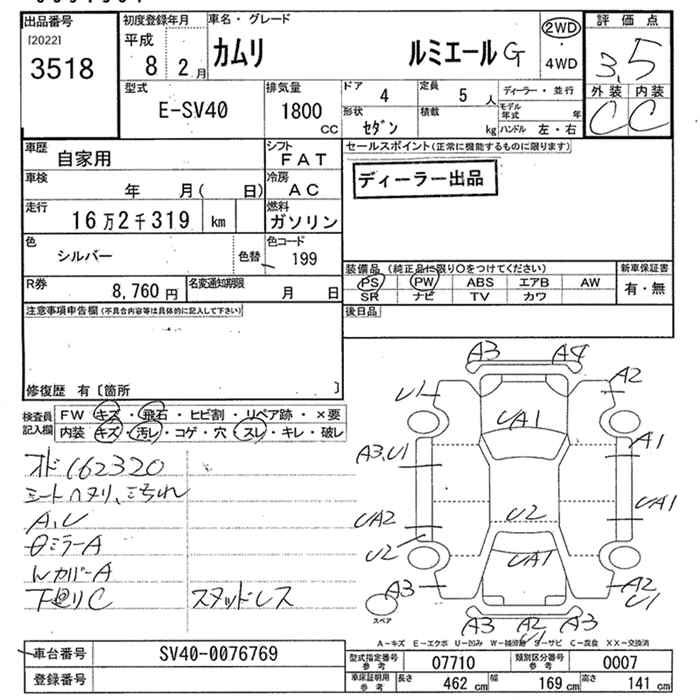 出品番号 初度登録年月 車名・グレード 2WD 評価点
[2022] 平成 カムリ ルミエール G 4WD 3.5
3518 8 2月 外装 内装
型式 排気量 ドア 4 定員 5人 ディーラー・並行 C C
E-SV40 1800 CC 形状 セダン 積載 kg モデル年式 年
ハンドル 左・右
車歴 自家用 シフト FAT セールスポイント(正常に機能するものに限ります)
車検 年 月( 日) 冷房 AC ディーラー出品
走行 16万2千319 km 燃料 ガソリン
色 シルバー 色替 色コード 199
装備品 (純正品に限り○をつけてください) 新車保証書
R券 8,760円 名変通知期限 月 日 PS PW ABS エアB AW 有・無
SR ナビ TV カワ
注意事項申告欄(不具合内容等は具体的に記入して下さい) 後日品
修復歴 有〔箇所 〕
検査員記入欄 FW キズ・飛石・ヒビ割・リペア跡・×要
内装 キズ・汚レ・コゲ・穴・スレ・キレ・破レ
162320
A,U
ミラーA
WカバーA
下廻りC スタッドレス
A3 A4
U1 A2
UA1
A3,U1 A1
UA2 U2 UA1
U2 UA1
A3 A2 U1
A3 A2 U1 A3
スペア
A-キズ E-エクボ U-凹み W-補修跡 S-サビ C-腐食 XX-交換済
車台番号 SV40-0076769
型式指定番号 参考 07710 類別区分番号 参考 0007
登録番号
車庫証明用 参考 長さ 462 cm 幅 169 cm 高さ 141 cm